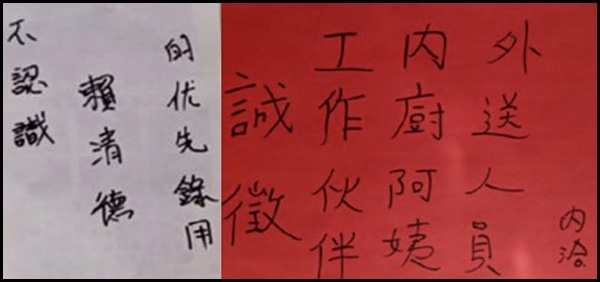 不認識
賴清德
的优先錄用
誠徵
工作伙伴
內廚阿姨
外送人員
內洽